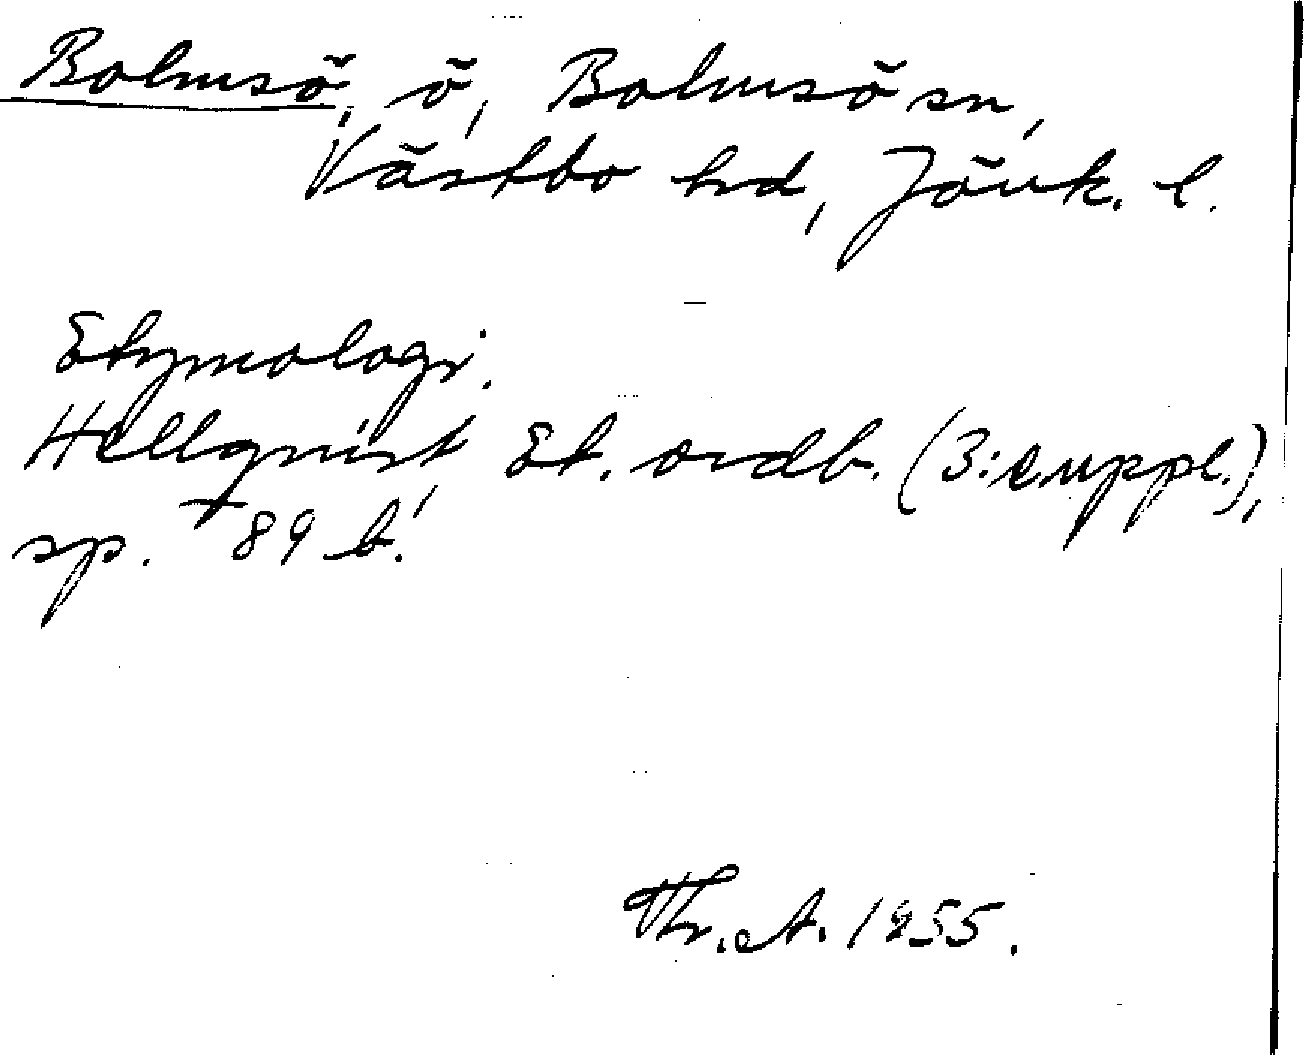 Bolmsö, ö, Bolmsö sn,
Västbo hd, Jönk. l.
Etymologi.
Hellquist, Et. ordb. (3:e uppl.),
sp. 89 b.
Th. A. 1955.